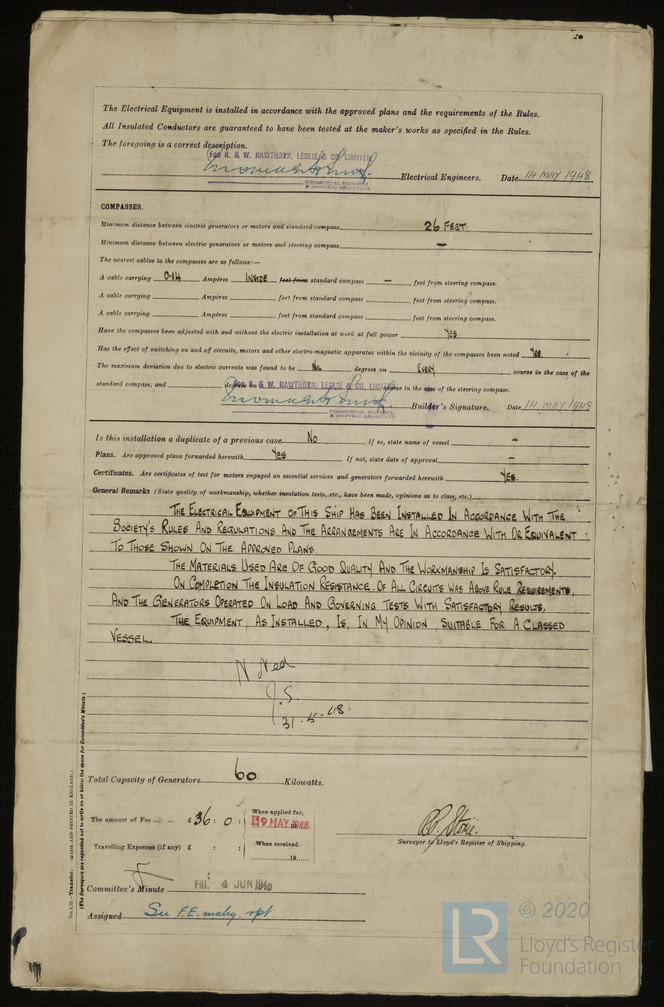 The Electrical Equipment is installed in accordance with the approved plans and the requirements of the Rules.
All Insulated Conductors are guaranteed to have been tested at the maker's works as specified in the Rules.
The foregoing is a correct description.
FOR R. & W. HAWTHORN, LESLIE & CO. LIMITED
Electrical Engineers. Date 14 MAY 1948
COMMERCIAL MANAGER
& SHIPYARD SECRETARY
COMPASSES.
Minimum distance between electric generators or motors and standard compass 26 FEET
Minimum distance between electric generators or motors and steering compass —
The nearest cables to the compasses are as follows:—
A cable carrying 0.14 Ampères INSIDE feet from standard compass — feet from steering compass.
A cable carrying Ampères feet from standard compass feet from steering compass.
A cable carrying Ampères feet from standard compass feet from steering compass.
Have the compasses been adjusted with and without the electric installation at work at full power YES
Has the effect of switching on and off circuits, motors and other electro-magnetic apparatus within the vicinity of the compasses been noted YES.
The maximum deviation due to electric currents was found to be NIL degrees on EVERY course in the case of the
standard compass, and degrees on course in the case of the steering compass.
FOR R. & W. HAWTHORN, LESLIE & CO. LIMITED
Builder's Signature. Date 14 MAY 1948
COMMERCIAL MANAGER
& SHIPYARD SECRETARY
Is this installation a duplicate of a previous case No If so, state name of vessel —
Plans. Are approved plans forwarded herewith YES If not, state date of approval —
Certificates. Are certificates of test for motors engaged on essential services and generators forwarded herewith YES.
General Remarks (State quality of workmanship, whether insulation tests, etc., have been made, opinions as to class, etc.)
THE ELECTRICAL EQUIPMENT OF THIS SHIP HAS BEEN INSTALLED IN ACCORDANCE WITH THE
SOCIETY'S RULES AND REGULATIONS AND THE ARRANGEMENTS ARE IN ACCORDANCE WITH OR EQUIVALENT
TO THOSE SHOWN ON THE APPROVED PLANS.
THE MATERIALS USED ARE OF GOOD QUALITY AND THE WORKMANSHIP IS SATISFACTORY.
ON COMPLETION THE INSULATION RESISTANCE. OF ALL CIRCUITS WAS ABOVE RULE REQUIREMENTS,
AND THE GENERATORS OPERATED ON LOAD AND GOVERNING TESTS WITH SATISFACTORY RESULTS.
THE EQUIPMENT, AS INSTALLED, IS, IN MY OPINION, SUITABLE FOR A CLASSED
VESSEL.
Noted
J.S.
31-5-48.
(The Surveyors are requested not to write on or below the space for Committee's Minute.)
(MADE AND PRINTED IN ENGLAND.)
Total Capacity of Generators 60 Kilowatts.
The amount of Fee ... ... £ 36 : 0 :
When applied for,
19 MAY 1948
Travelling Expenses (if any) £ : :
When received.
19
Surveyor to Lloyd's Register of Shipping.
Committee's Minute FRI. 4 JUN 1948
Assigned See F.E. mchy. rpt.
LR
© 2020
Lloyd's Register
Foundation